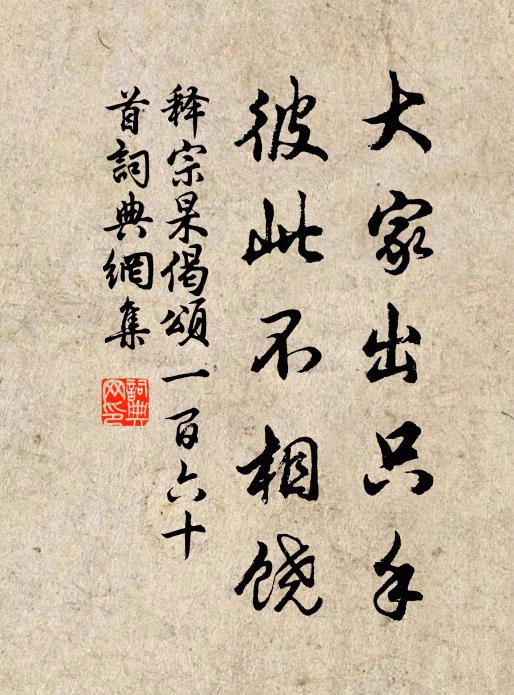 大家出只手
彼此不相饶
释宗杲偈颂一百六十
首詞典網集
詞典
网印